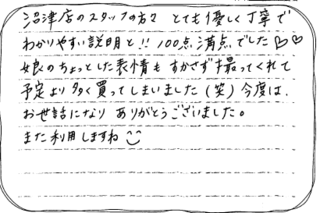 沼津店のスタッフの方々 とても優しく丁寧で
わかりやすい説明と!! 100点満点でした♡♡
娘のちょっとした表情も すかさず撮ってくれて
予定より多く買ってしまいました(笑)今度は、
お世話になり ありがとうございました。
また利用しますね